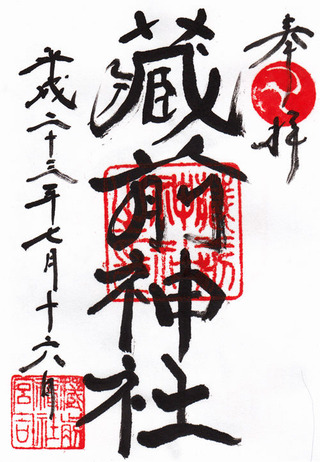 奉拝
蔵前神社
平成二十三年七月十六日
蔵前神社
蔵前神社宮司